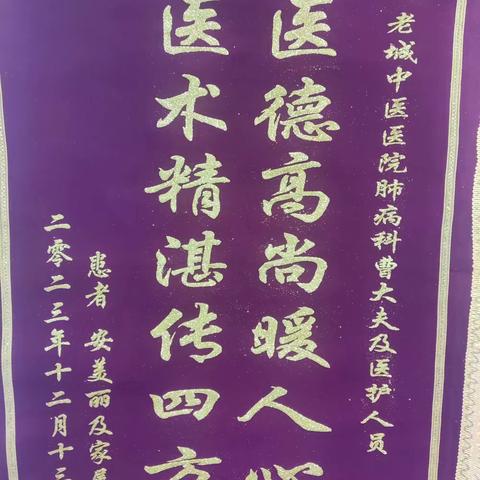 老城中医医院肺病科曹大夫及医护人员
医德高尚暖人心
医术精湛传四方
患者 安美丽及家属
二零二三年十二月十三